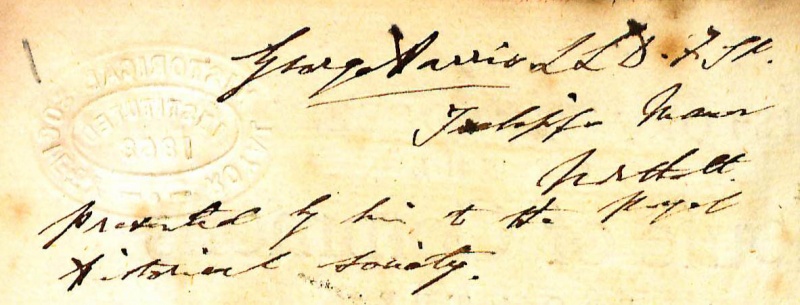 George Harris LLD. F.S.A.
Iselipps Manor
Northolt.
presented by him to the Royal
Historical Society.
HISTORICAL SOCIETY
INSTITUTED
1868